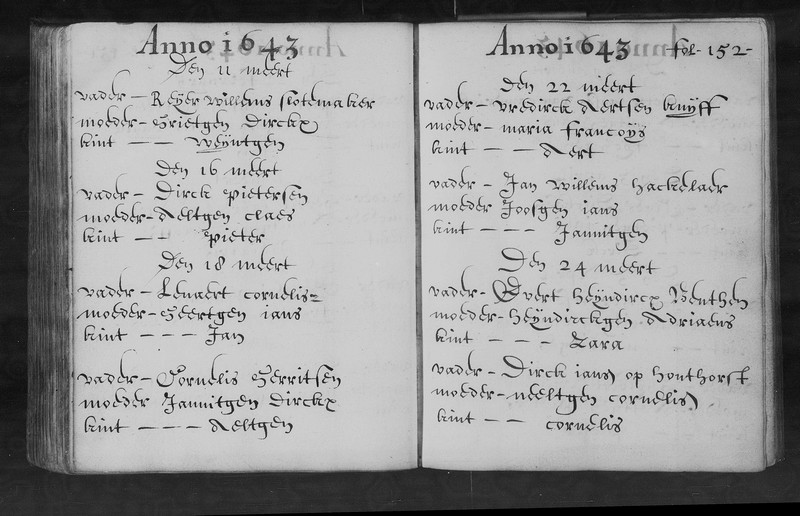 Anno 1643
Den 11 meert
vader - Reÿer willems slotemaker
moeder - Grietgen Dirckx
kint - - weÿntgen
Den 16 meert
vader - Dirck pietersen
moeder - Aeltgen claes
kint - - pieter
Den 18 meert
vader - Lenaert cornelis
moeder - Geertgen ians
kint - - - Jan
vader - Cornelis Gerritsen
moeder Jannitgen Dirckx
kint - - - Aeltgen
Anno 1643 fol - 152 -
Den 22 meert
vader - vredirck Aertsen knÿff
moeder - maria francoÿs
kint - - Aert
vader - Jan willems hackelaer
moeder Joosgen ians
kint - - - Jannitgen
Den 24 meert
vader - Evert heÿndircx Benthen
moeder - heÿndirckgen Adriaens
kint - - - Zara
vader - Dirck ians op honthorst
moeder - neeltgen cornelis
kint - - cornelis